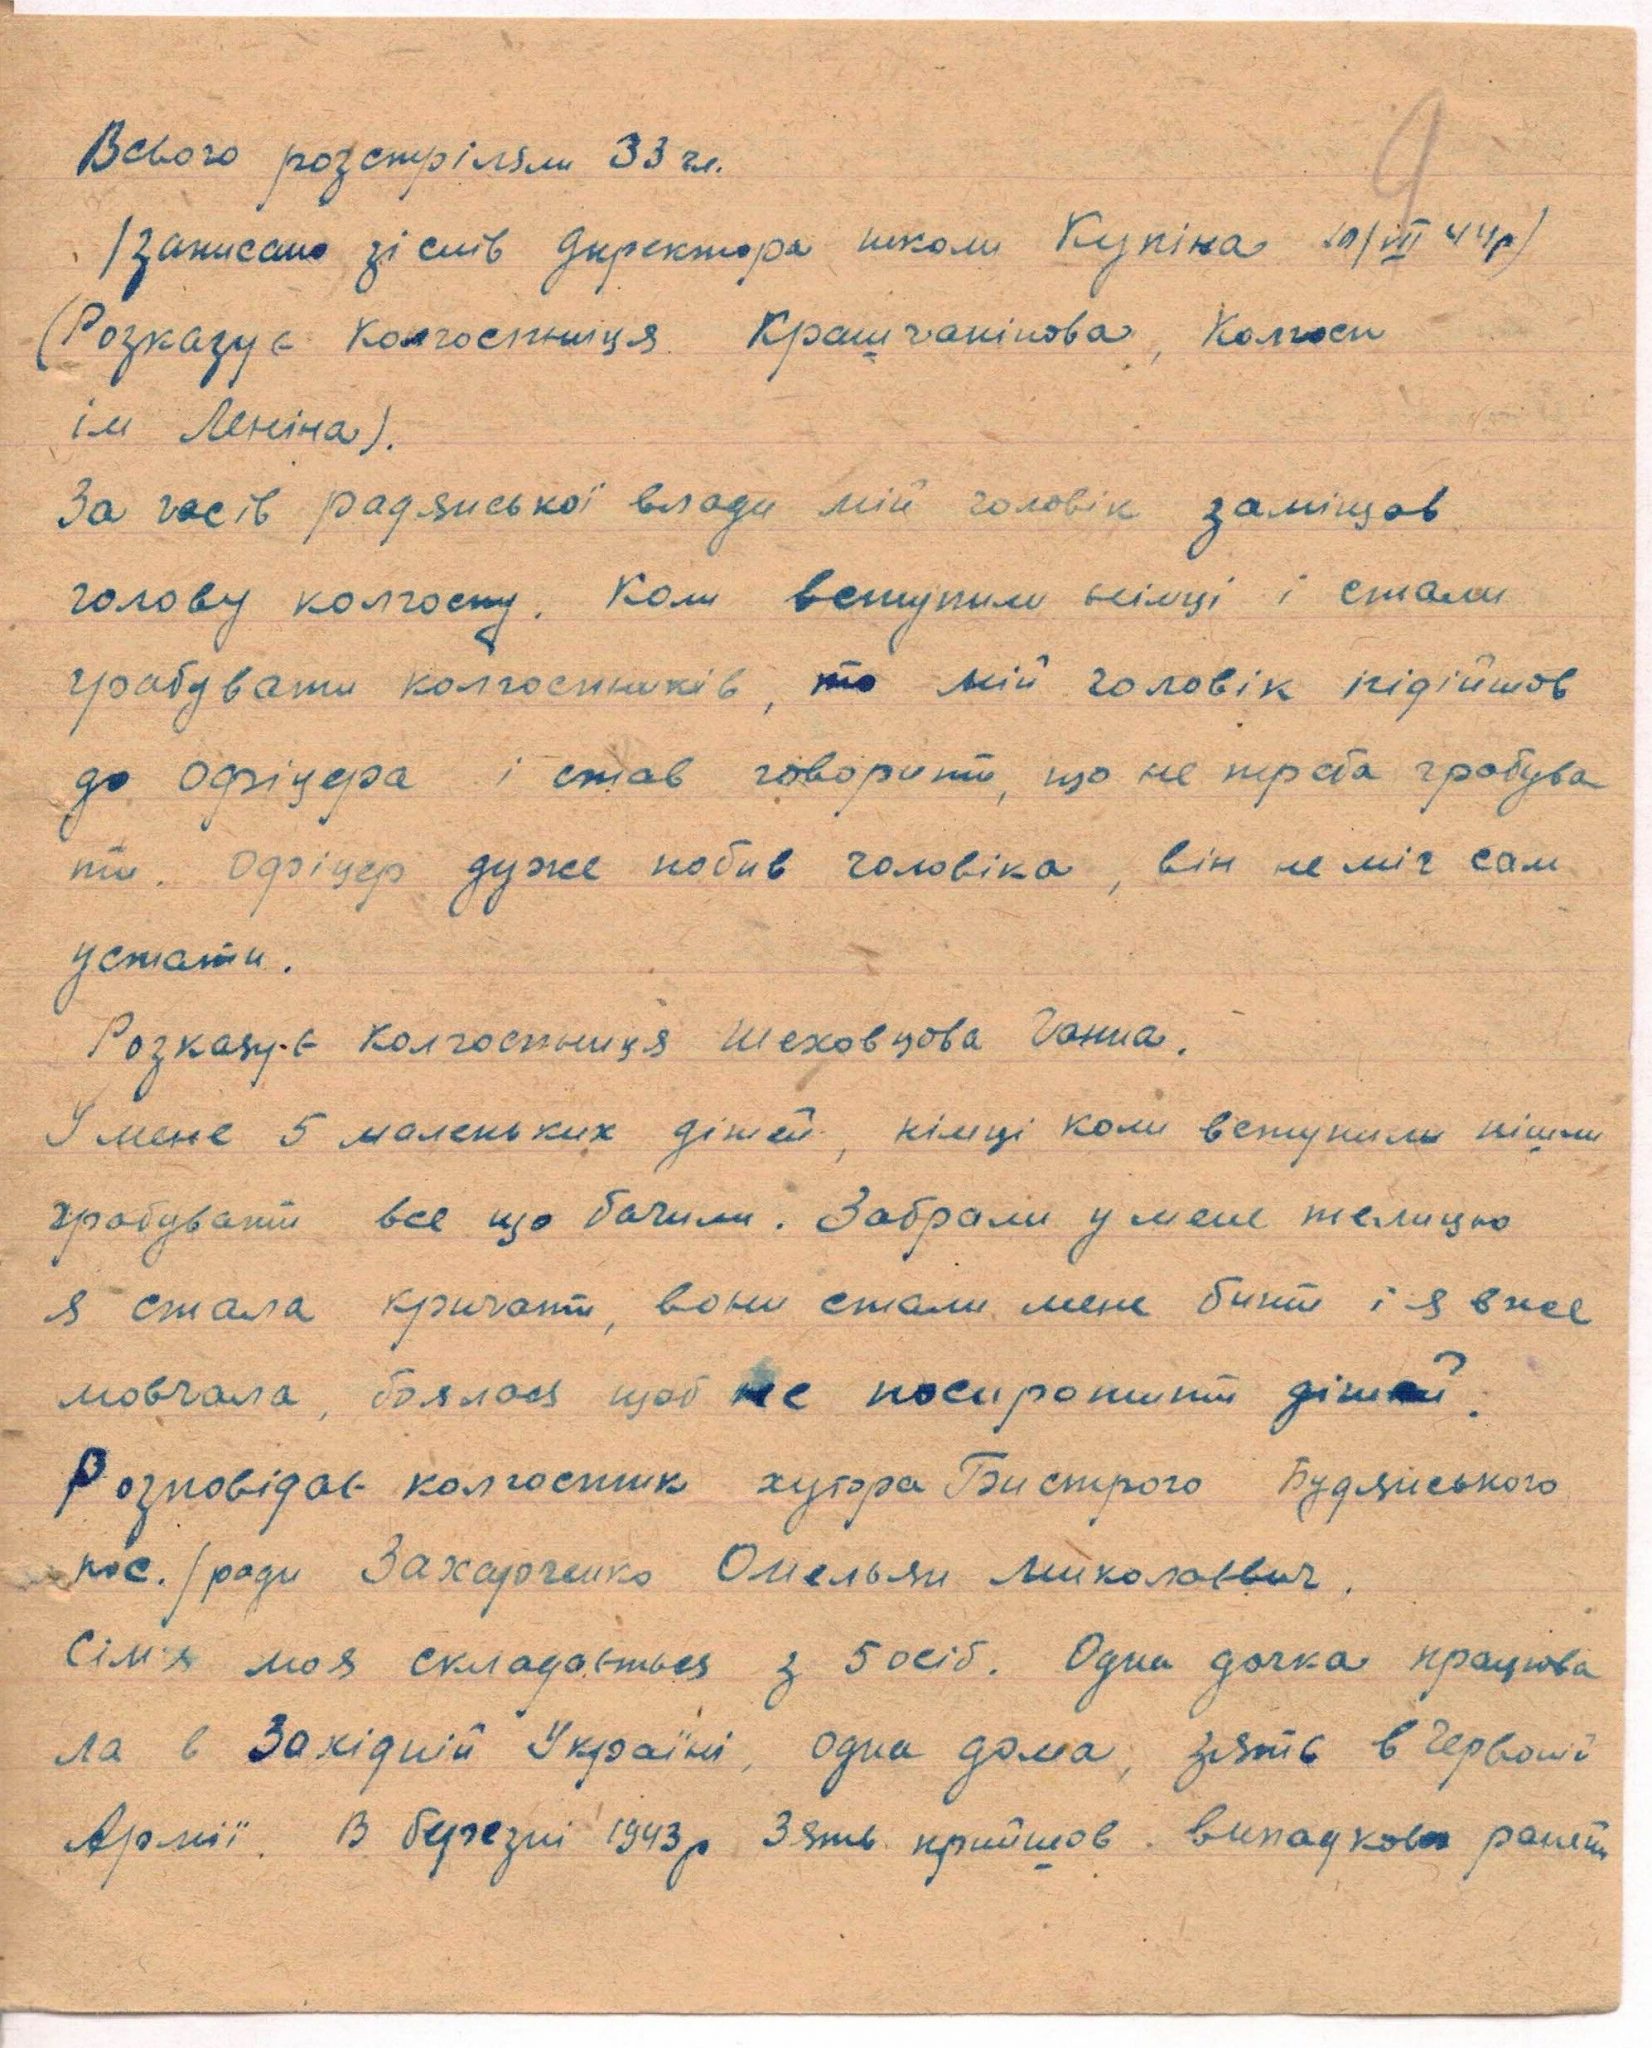 9
Всього розстріляли 33 чл.
/Записано зі слів директора школи Купіна /VII 44р/
(Розказує колгоспниця Крашчанінова, колгосп
ім Леніна).
За часів радянської влади мій чоловік заміщав
голову колгоспу. Коли вступили німці і стали
грабувати колгоспників, то мій чоловік підійшов
до офіцера і став говорити, що не треба грабува
ти. Офіцер дуже побив чоловіка, він не міг сам
устати.
Розказує колгоспниця Шеховцова Ганна.
У мене 5 маленьких дітей, німці коли вступили пішли
грабувати все що бачили. Забрали у мене телицю
я стала кричати, вони стали мене бити і я вже
мовчала, боялась щоб не посиротити дітей.
Розповідає колгоспник хутора Бистрого Будянського
пос./ради Захарченко Омельян Миколаєвич.
Сім'я моя складається з 5 осіб. Одна дочка працюва
ла в Західній Україні, одна дома, зять в Червоній
Армії. В березні 1943р Зять прийшов випадково